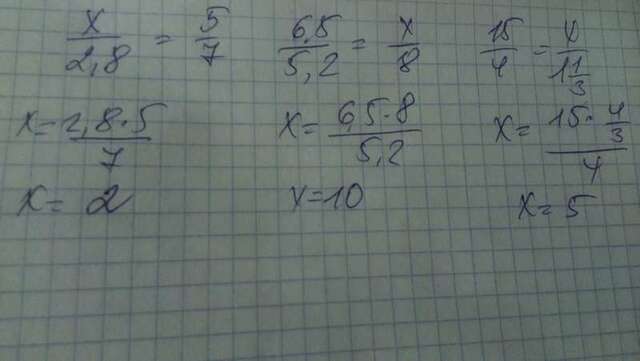 x/2,8 = 5/7
x = 2,8·5/7
x = 2
6,5/5,2 = x/8
x = 6,5·8/5,2
x = 10
15/4 = x/1 1/3
x = 15·4/3/4
x = 5